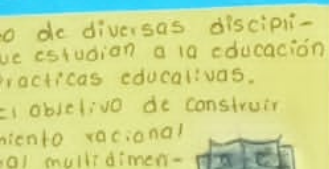 o de diversas discipli-
ue estudian a la educación
racticas educativas.
El objetivo de construir
miento racional
al multidimen-